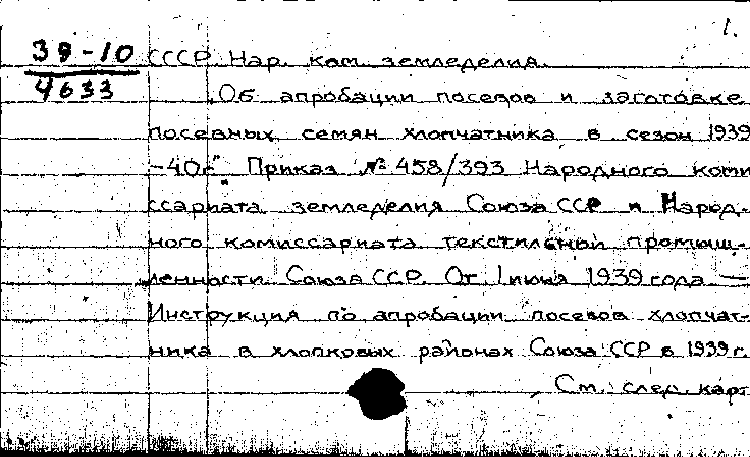 1.
39-10 СССР. Нар. ком. земледелия.
4633
„Об апробации посевов и заготовке
посевных семян хлопчатника в сезон 1939
-40г." Приказ № 458/393 Народного коми
ссариата земледелия Союза ССР и Народ-
ного комиссариата текстильной промыш-
ленности Союза ССР. От 1 июня 1939 года —
Инструкция по апробации посевов хлопчат-
ника в хлопковых районах Союза ССР в 1939 г.
См. след. карт